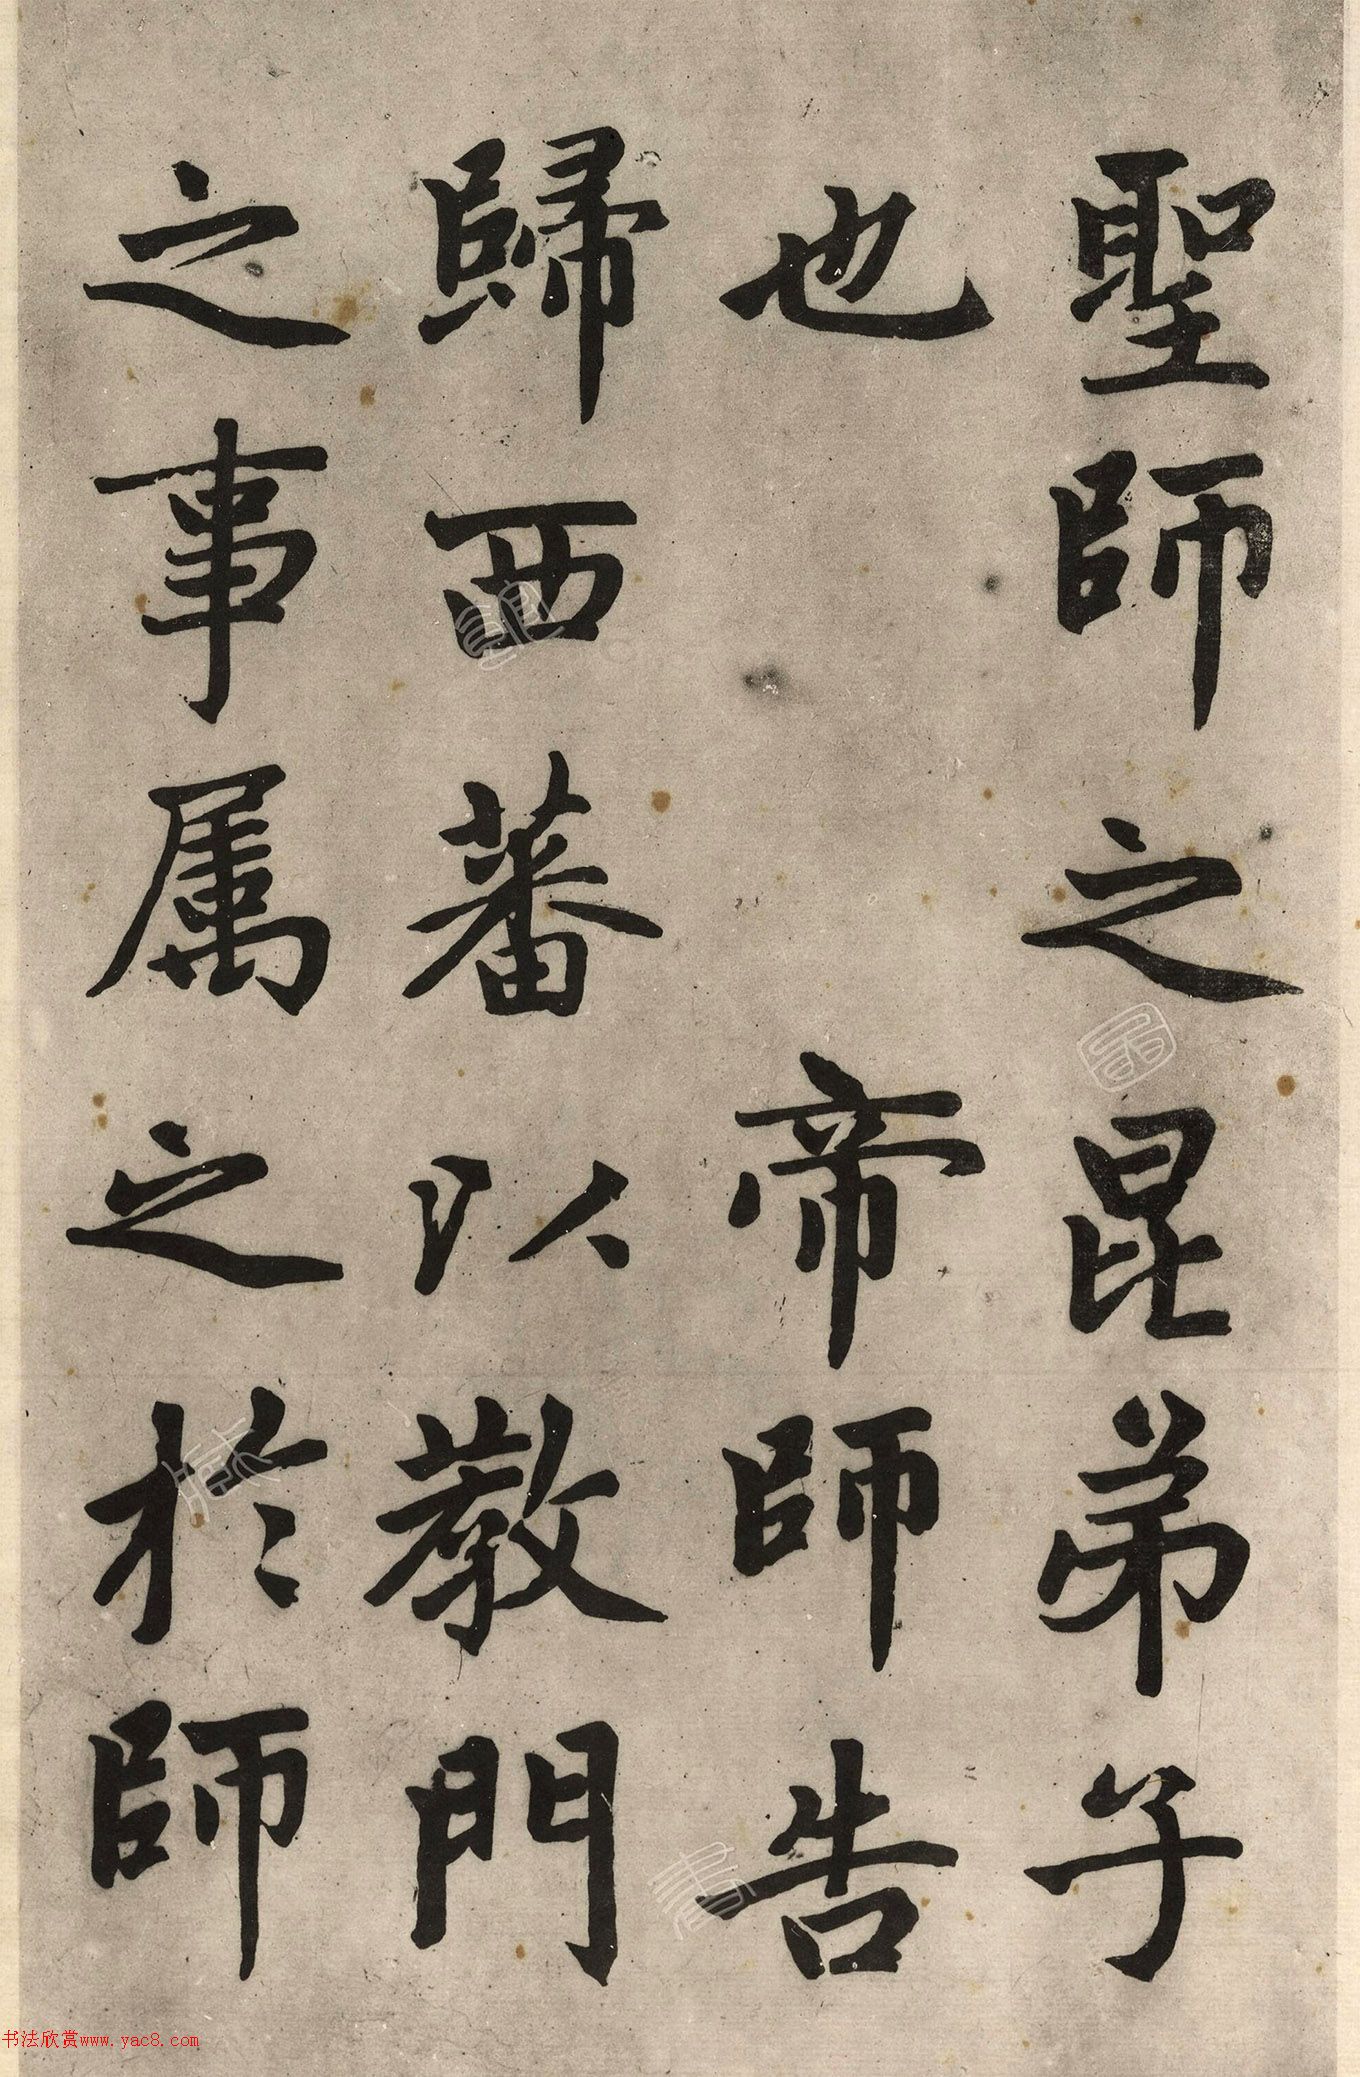 聖師之昆弟子
也 帝師告
歸西蕃以教門
之事属之於師
书法欣赏www.yac8.com